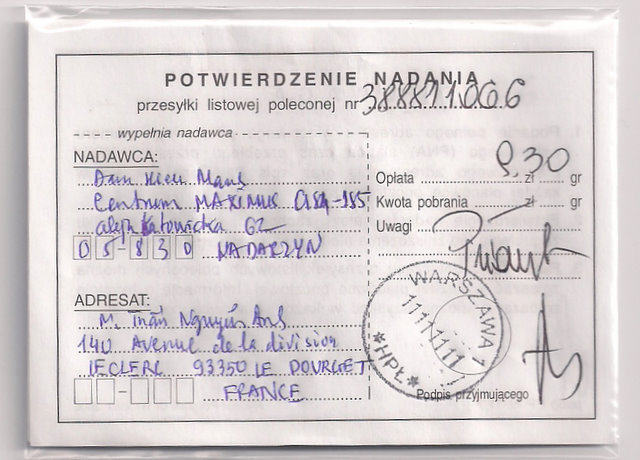 POTWIERDZENIE NADANIA
przesyłki listowej poleconej nr 388811.066
wypełnia nadawca
NADAWCA:
Dam Hieu Manh
Centrum MAXIMUS
aleja Katowicka 62
05-830 NADARZYN
Opłata 9,30 zł gr
Kwota pobrania zł gr
Uwagi
Prioryt
ADRESAT:
M. Trần Nguyên Anh
140 Avenue de la division
LECLERC 93350 LE BOURGET
FRANCE
WARSZAWA 1
*HPŁ*
Podpis przyjmującego